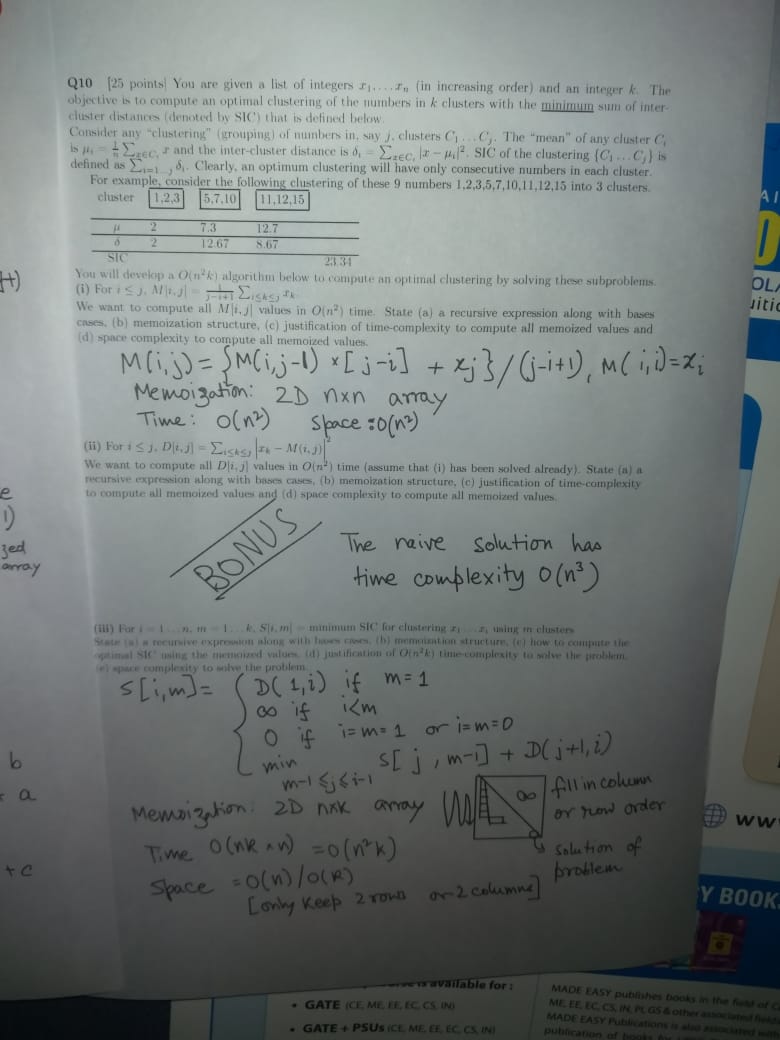 Q10 [25 points] You are given a list of integers x₁....xₙ (in increasing order) and an integer k. The
objective is to compute an optimal clustering of the numbers in k clusters with the minimum sum of inter-
cluster distances (denoted by SIC) that is defined below.
Consider any "clustering" (grouping) of numbers in, say j, clusters C₁...Cⱼ. The "mean" of any cluster Cᵢ
is μᵢ = 1/n ∑x∈Cᵢ x and the inter-cluster distance is δᵢ = ∑x∈Cᵢ |x − μᵢ|². SIC of the clustering {C₁...Cⱼ} is
defined as ∑ᵢ₌₁...ⱼ δᵢ. Clearly, an optimum clustering will have only consecutive numbers in each cluster.
For example, consider the following clustering of these 9 numbers 1,2,3,5,7,10,11,12,15 into 3 clusters.
cluster 1,2,3 5,7,10 11,12,15
μ 2 7.3 12.7
δ 2 12.67 8.67
SIC 23.34
You will develop a O(n²k) algorithm below to compute an optimal clustering by solving these subproblems.
(i) For i ≤ j, M[i,j] = 1/(j−i+1) ∑i≤k≤j xₖ
We want to compute all M[i,j] values in O(n²) time. State (a) a recursive expression along with bases
cases, (b) memoization structure, (c) justification of time-complexity to compute all memoized values and
(d) space complexity to compute all memoized values.
M(i,j) = {M(i,j-1) × [j-i] + xⱼ}/(j-i+1), M(i,i)=xᵢ
Memoization: 2D n×n array
Time: O(n²) Space: O(n²)
(ii) For i ≤ j, D[i,j] = ∑i≤k≤j |xₖ − M(i,j)|²
We want to compute all D[i,j] values in O(n²) time (assume that (i) has been solved already). State (a) a
recursive expression along with bases cases, (b) memoization structure, (c) justification of time-complexity
to compute all memoized values and (d) space complexity to compute all memoized values.
BONUS
The naive solution has
time complexity O(n³)
(iii) For i = 1...n, m = 1...k, S[i,m] = minimum SIC for clustering x₁...xᵢ using m clusters
State (a) a recursive expression along with bases cases, (b) memoization structure, (c) how to compute the
optimal SIC using the memoized values, (d) justification of O(n²k) time-complexity to solve the problem,
(e) space complexity to solve the problem.
S[i,m] = { D(1,i) if m=1
∞ if i<m
0 if i=m=1 or i=m=0
min S[j,m-1] + D(j+1,i)
m-1≤j≤i-1
Memoization: 2D n×k array
∞
fill in column
or row order
solution of
problem
Time O(nk × n) = O(n²k)
Space = O(n)/O(k)
[only keep 2 rows or 2 columns]
t)
e
1)
zed
array
b
a
+ c
AI
OL
uitio
ww
Y BOOK
is available for :
• GATE (CE, ME, EE, EC, CS, IN)
• GATE + PSUs (CE, ME, EE, EC, CS, IN)
MADE EASY publishes books in the field of
ME, EE, EC, CS, IN, PI, GS & other associated
MADE EASY Publications is also associated
publication of books